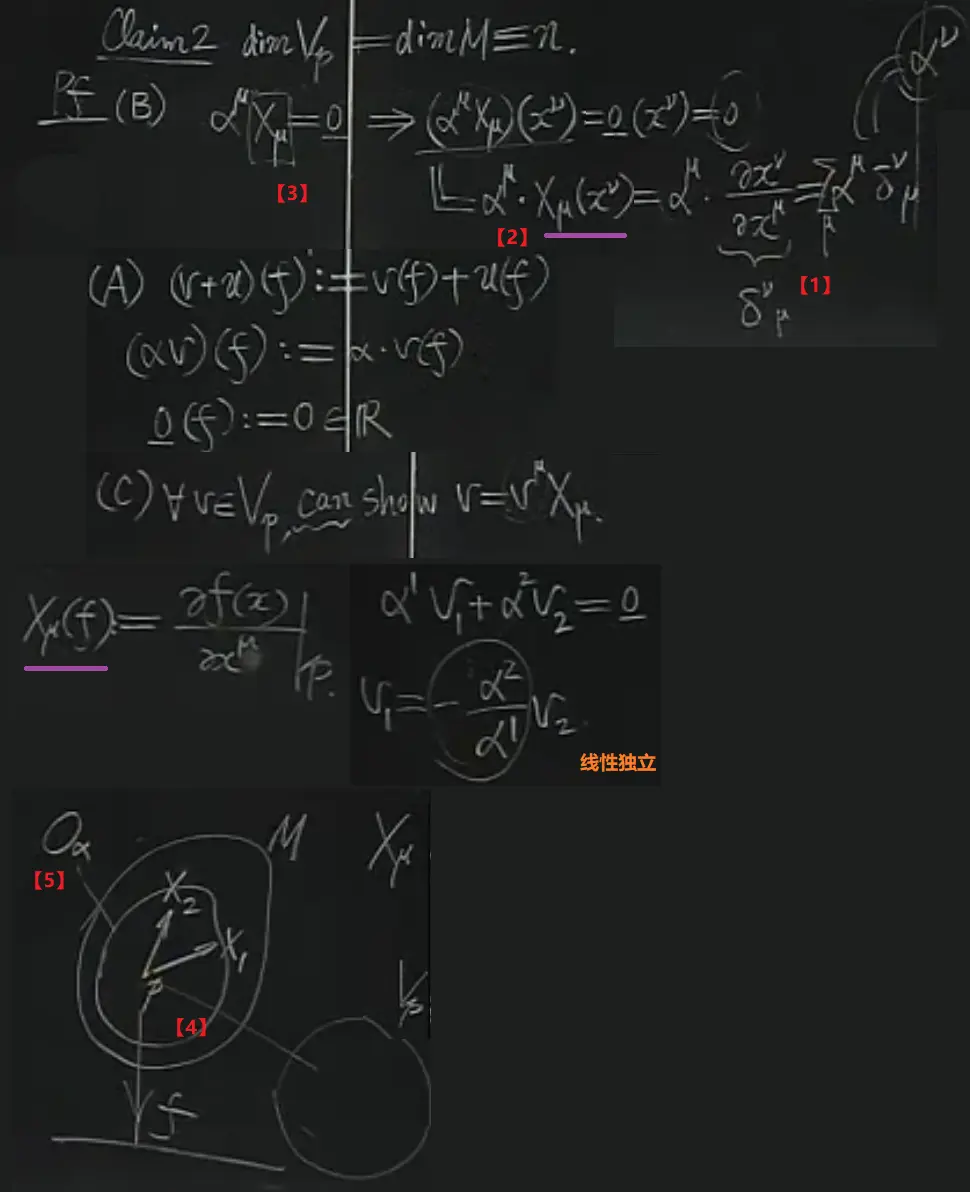 Claim 2 dim V_p = dim M ≡ n.
Pf (B) α^μ X_μ = 0 ⇒ (α^μ X_μ)(x^ν) = 0(x^ν) = 0
α^ν
【3】
α^μ · X_μ(x^ν) = α^μ · ∂x^ν/∂x^μ = Σ_μ α^μ δ^ν_μ
【2】
【1】
δ^ν_μ
(A) (v+u)(f) := v(f) + u(f)
(αv)(f) := α · v(f)
0(f) := 0 ∈ ℝ
(C) ∀ v ∈ V_p, can show v = v^μ X_μ.
X_μ(f) := ∂f(x)/∂x^μ |_p.
α^1 v_1 + α^2 v_2 = 0
v_1 = - α^2/α^1 v_2.
线性独立
O_α M X_μ
【5】
X_2
X_1
p
【4】
f